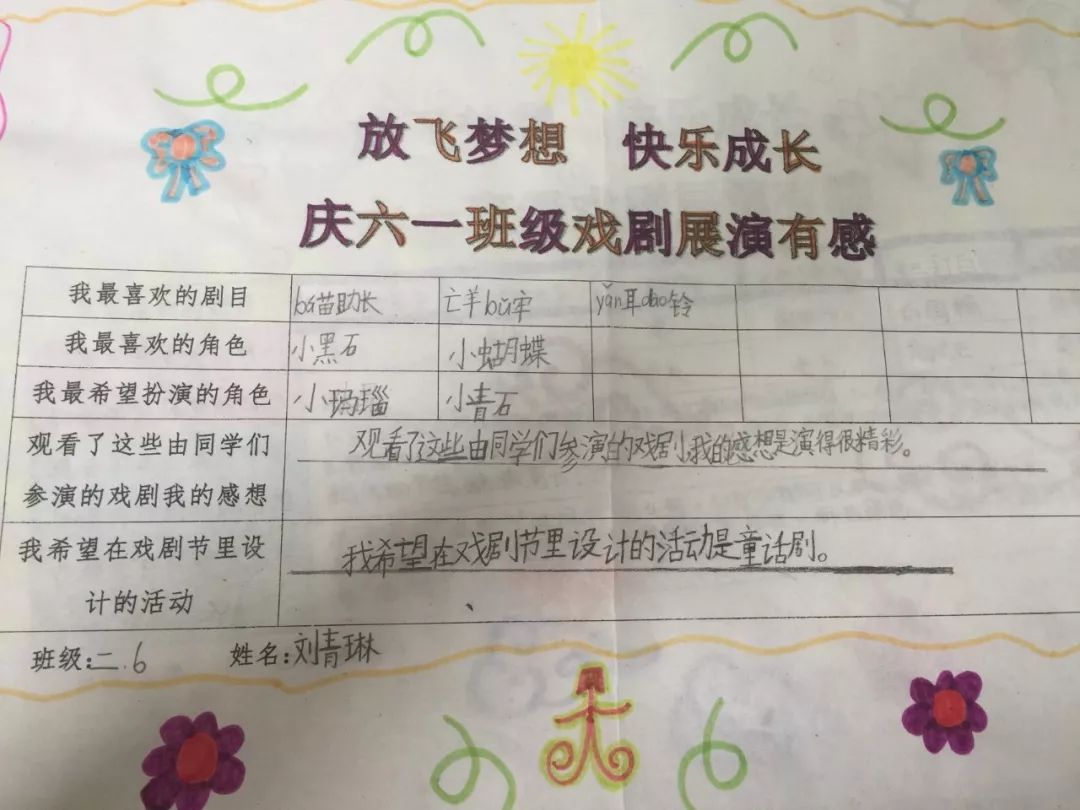 放飞梦想 快乐成长
庆六一班级戏剧展演有感
我最喜欢的剧目 bá苗助长 亡羊bǔ牢 yǎn耳dào铃
我最喜欢的角色 小黑石 小蝴蝶
我最希望扮演的角色 小玛瑙 小青石
观看了这些由同学们
参演的戏剧我的感想
观看了这些由同学们参演的戏剧小我的感想是演得很精彩。
我希望在戏剧节里设
计的活动
我希望在戏剧节里设计的活动是童话剧。
班级:二.6 姓名:刘青琳